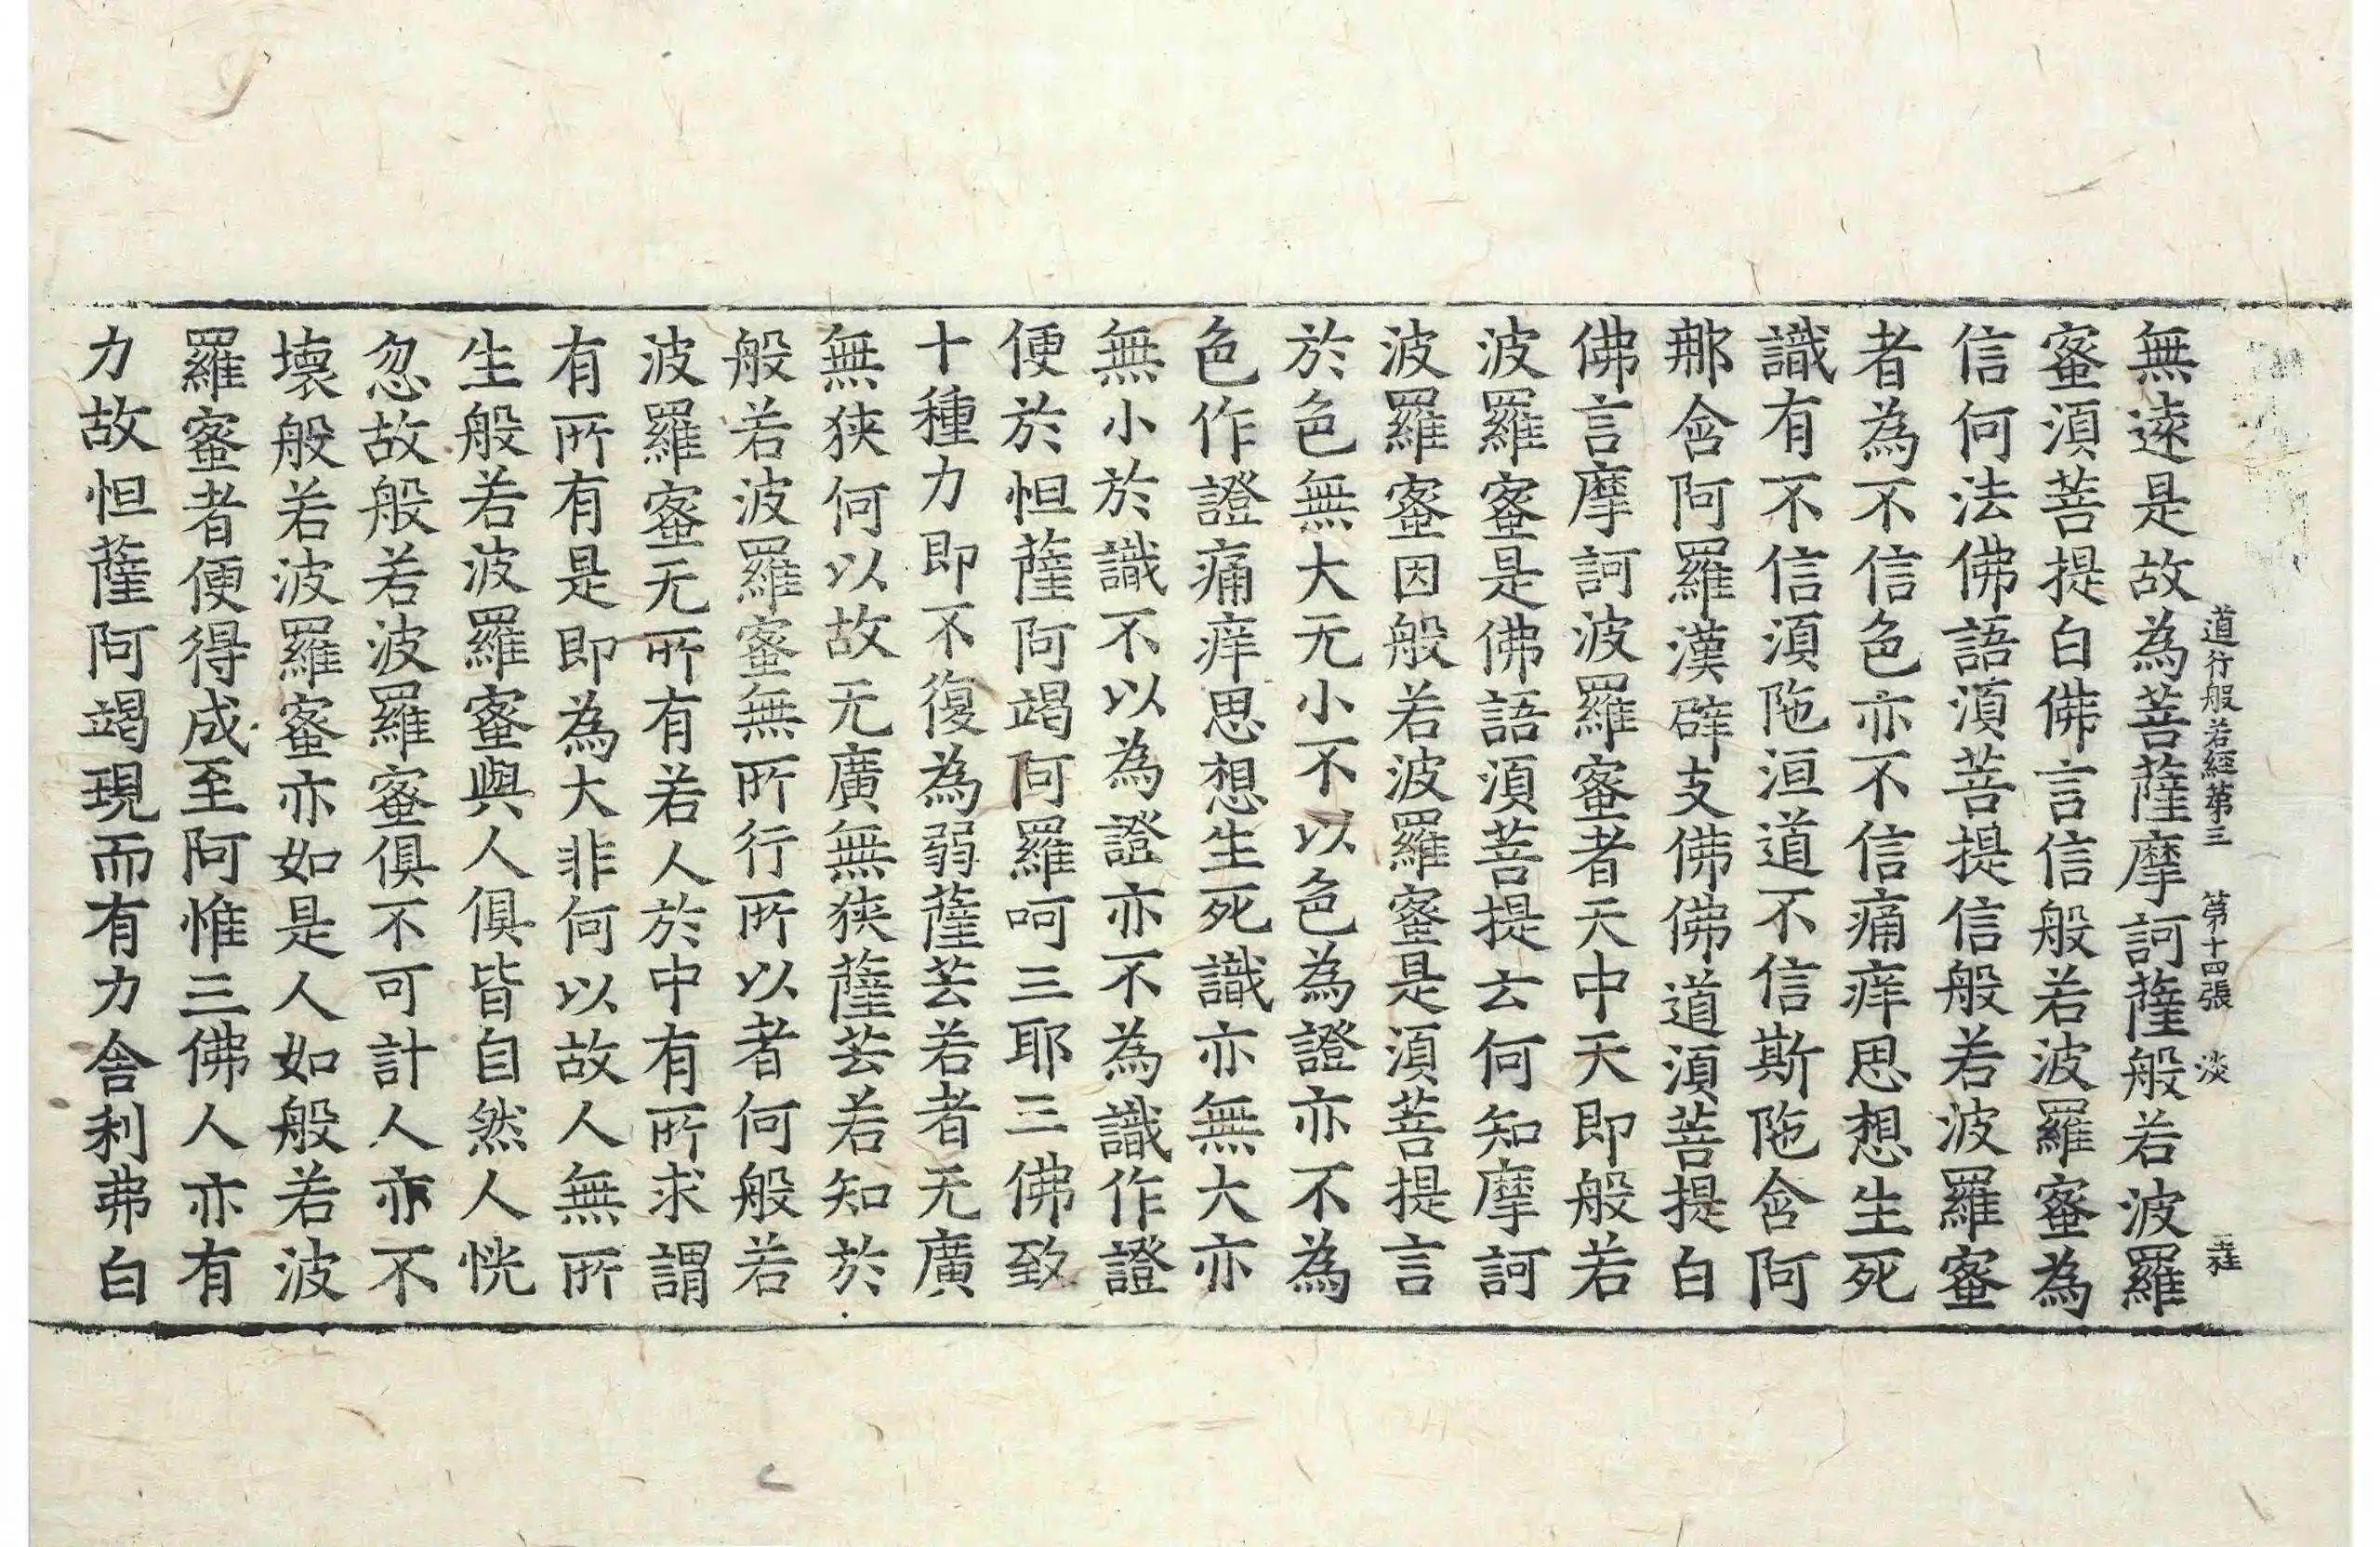 道行般若經第三 第十四張 淡
無逺是故為菩薩摩訶薩般若波羅
蜜湏菩提白佛言信般若波羅蜜為
信何法佛語湏菩提信般若波羅蜜
者為不信色亦不信痛痒思想生死
識有不信湏陁洹道不信斯陁含阿
那含阿羅漢辟支佛佛道湏菩提白
佛言摩訶波羅蜜者天中天即般若
波羅蜜是佛語湏菩提云何知摩訶
波羅蜜因般若波羅蜜是湏菩提言
於色無大无小不以色為證亦不為
色作證痛痒思想生死識亦無大亦
無小於識不以為證亦不為識作證
便於怛薩阿竭阿羅呵三耶三佛致
十種力即不復為弱薩芸若者无廣
無狹何以故无廣無狹薩芸若知於
般若波羅蜜無所行所以者何般若
波羅蜜无所有若人於中有所求謂
有所有是即為大非何以故人無所
生般若波羅蜜與人俱皆自然人恍
忽故般若波羅蜜俱不可計人亦不
壞般若波羅蜜亦如是人如般若波
羅蜜者便得成至阿惟三佛人亦有
力故怛薩阿竭現而有力舍利弗白